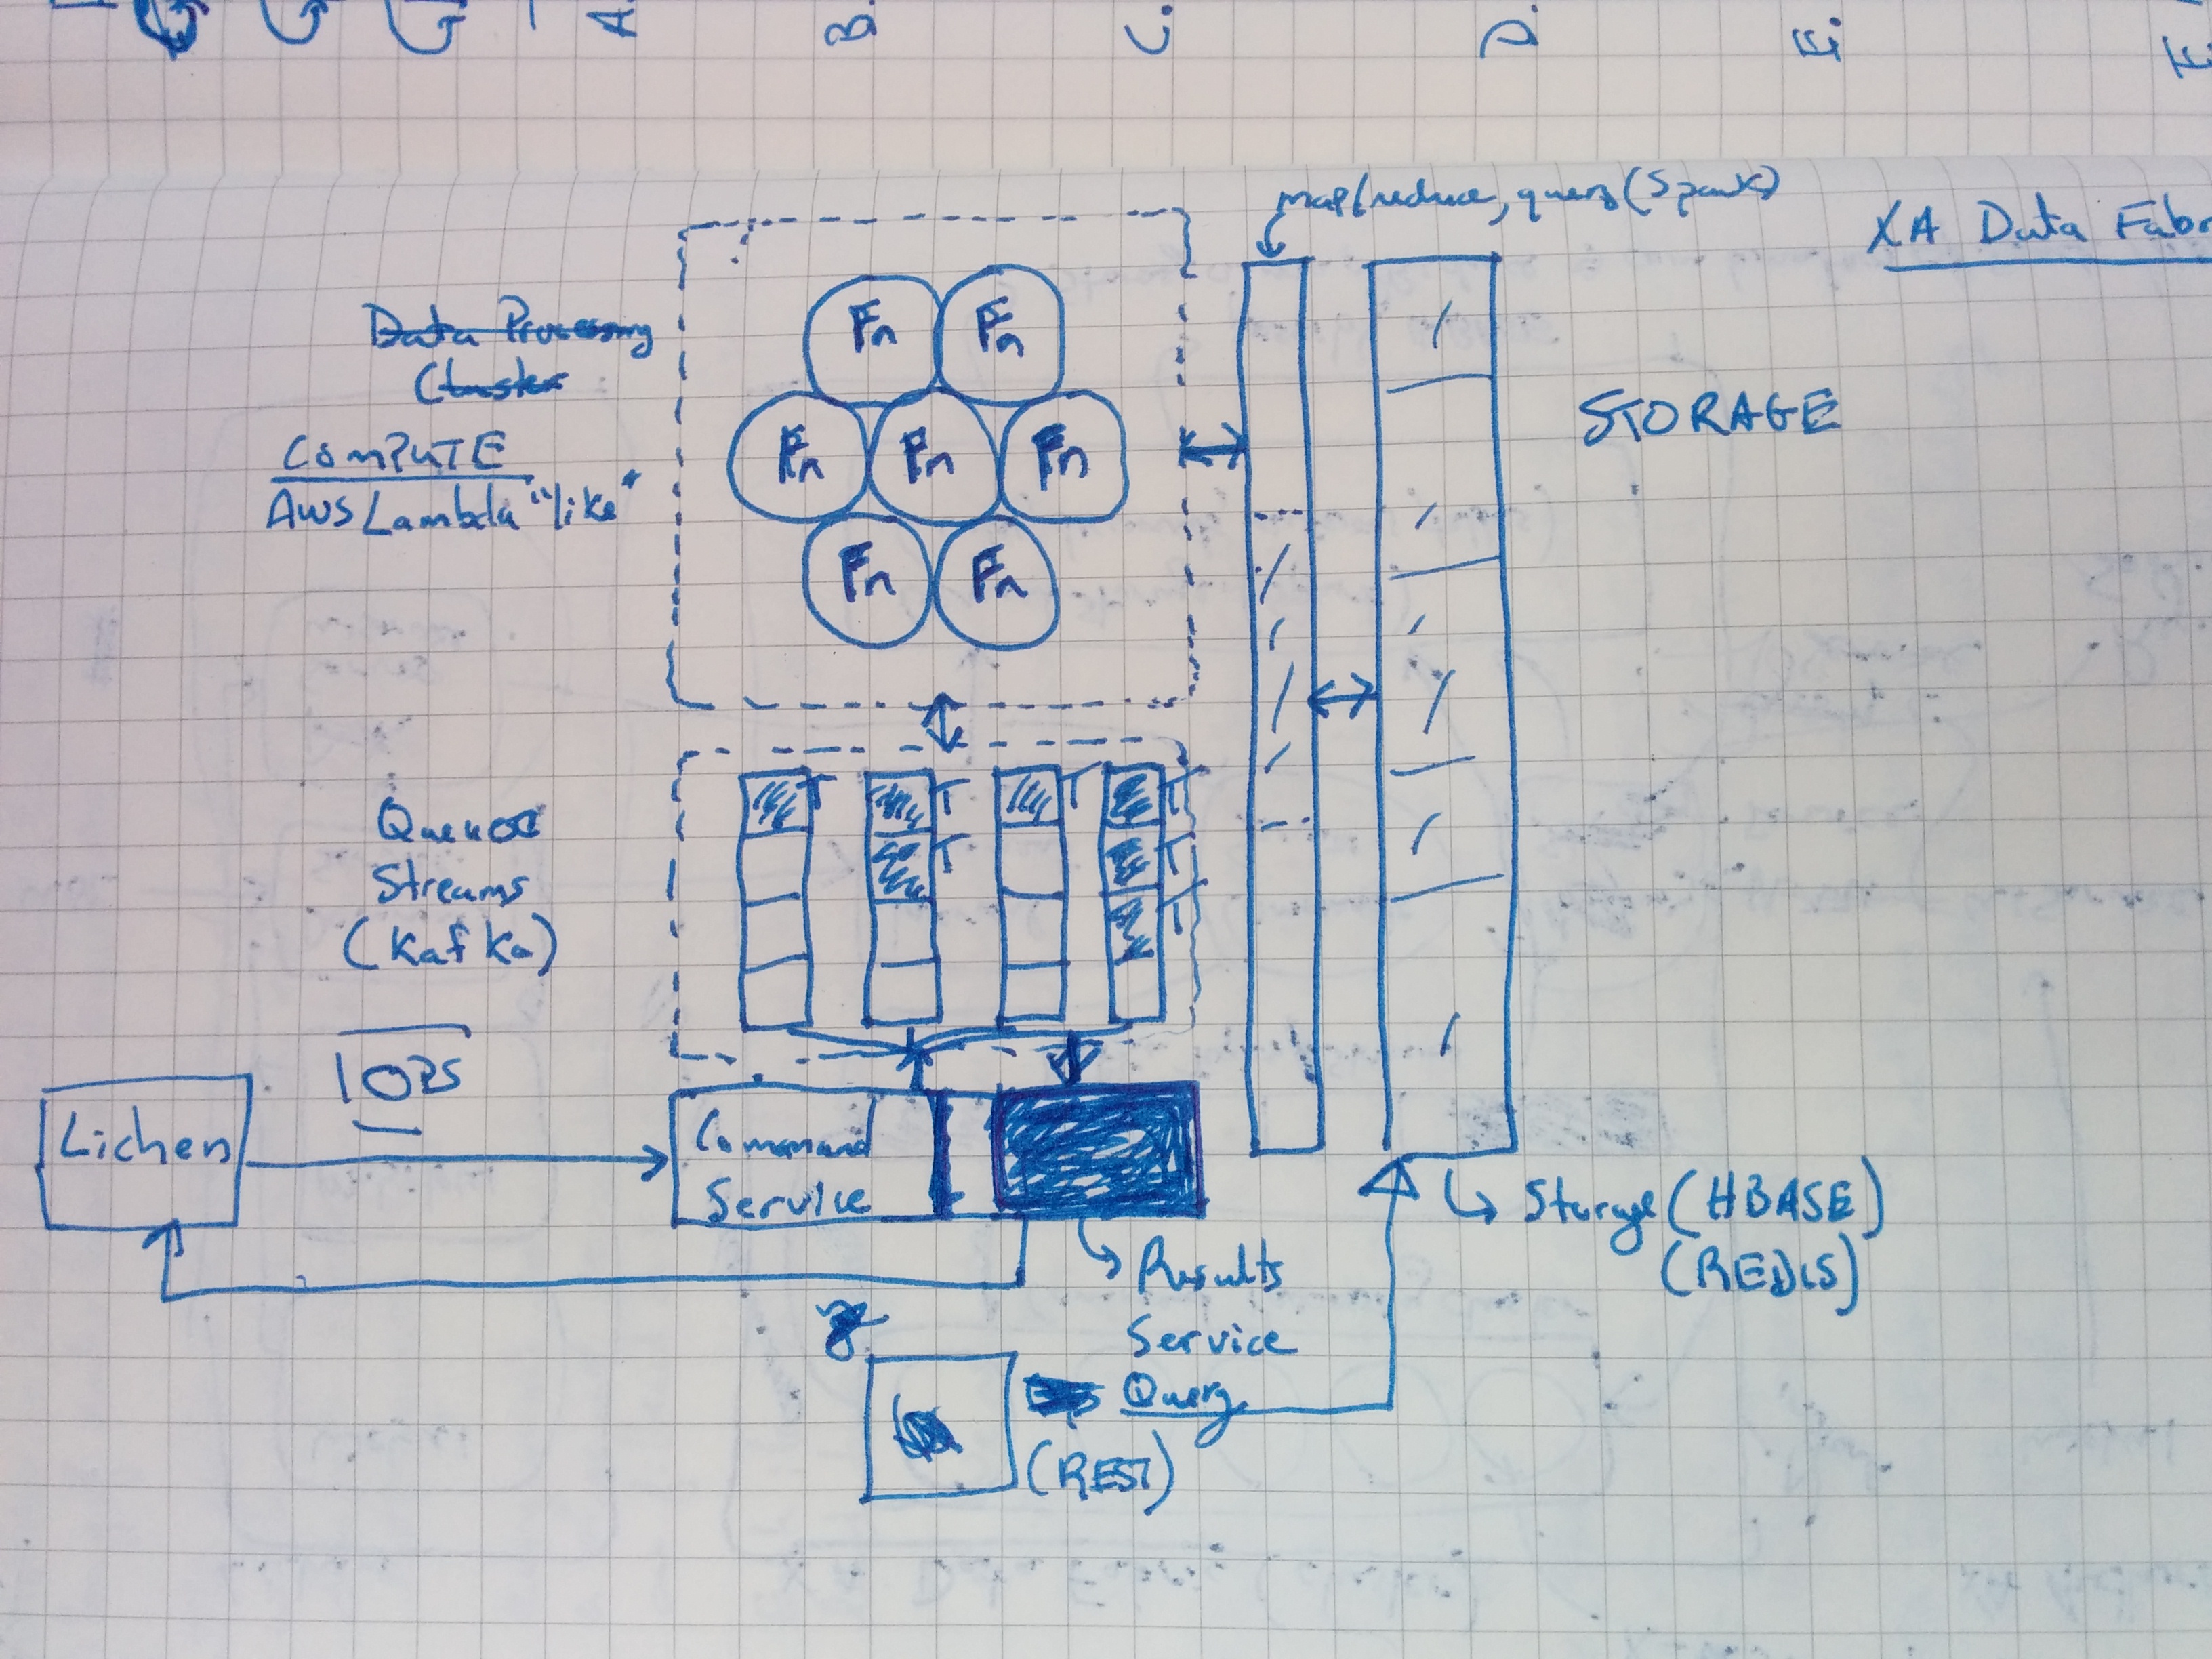 A.
B.
C.
D.
E.
F.
map/reduce, query (Spark)
XA Data Fabr
Data Processing
Cluster
COMPUTE
AWS Lambda "like"
Fn Fn
Fn Fn Fn
Fn Fn
STORAGE
Queue
Streams
(Kafka)
T T T T
T T
T
IOPS
Lichen
Command
Service
Storage (HBASE)
(REDIS)
Results
Service
Query
(REST)